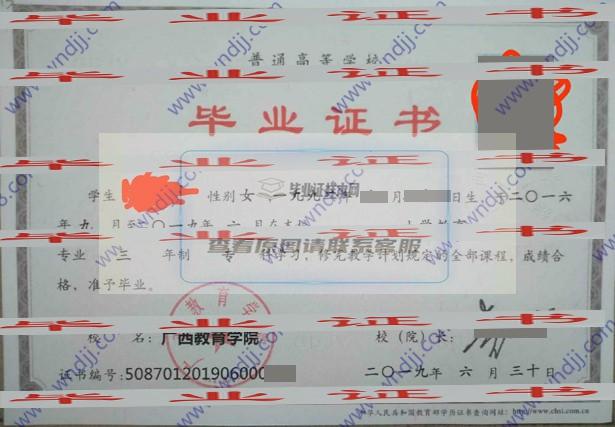 普通高等学校
毕业证书
学生 性别 女 一九九 年 月 日生 于二〇一六
年 九 月至二〇一九年 六 月在本
专业 三 年制 专 科学习，修完教学计划规定的全部课程，成绩合
格，准予毕业。
毕业证样本网
查看原图请联系客服
校 名：广西教育学院
校（院）长：
证书编号：508701201906000
二〇一九年 六 月 三十日
中华人民共和国教育部学历证书查询网址：http://www.chsi.com.cn
www.wndjj.com
毕 业 证 书